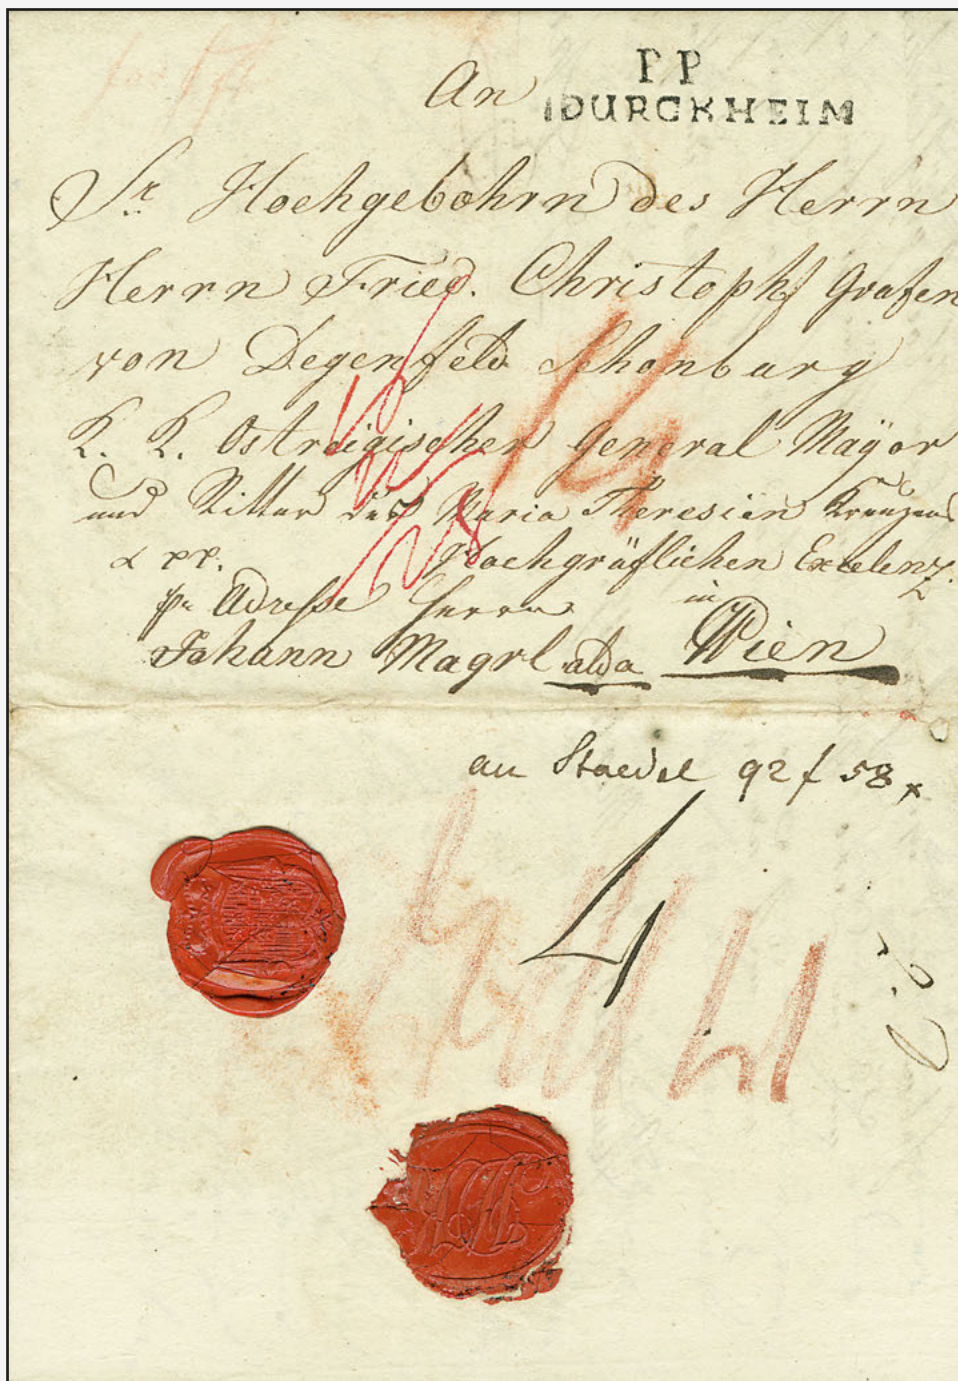 P P
An DURCKHEIM
Sr Hochgebohrn des Herrn
Herrn Fried. Christoph Grafen
von Degenfeld Schonburg
K. K. Ostreigischer General Mayor
und Ritter des Maria Theresien Kreuzes
& pp. Hochgräflichen Excelenz.
pr Adresse Herrn in
Johann Magrl alda Wien
14
an Staedel 92 f 58 x
4